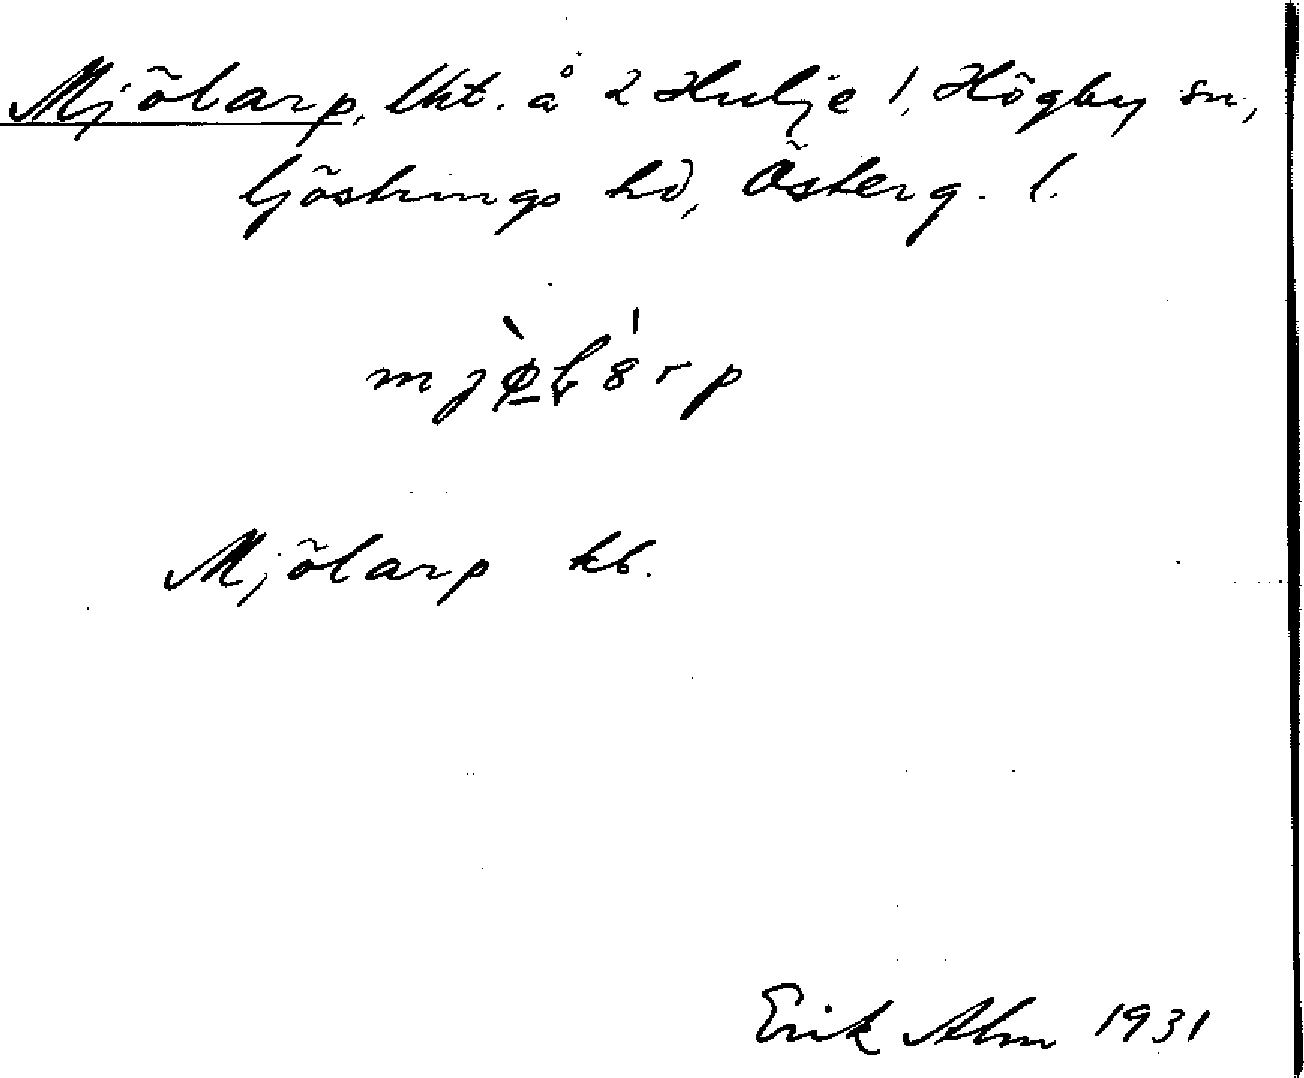 Mjölarp, lht. å 2 Hulje 1, Högby sn,
Göstrings hd, Österg. l.
Mjölarp kb.
Erik Alm 1931